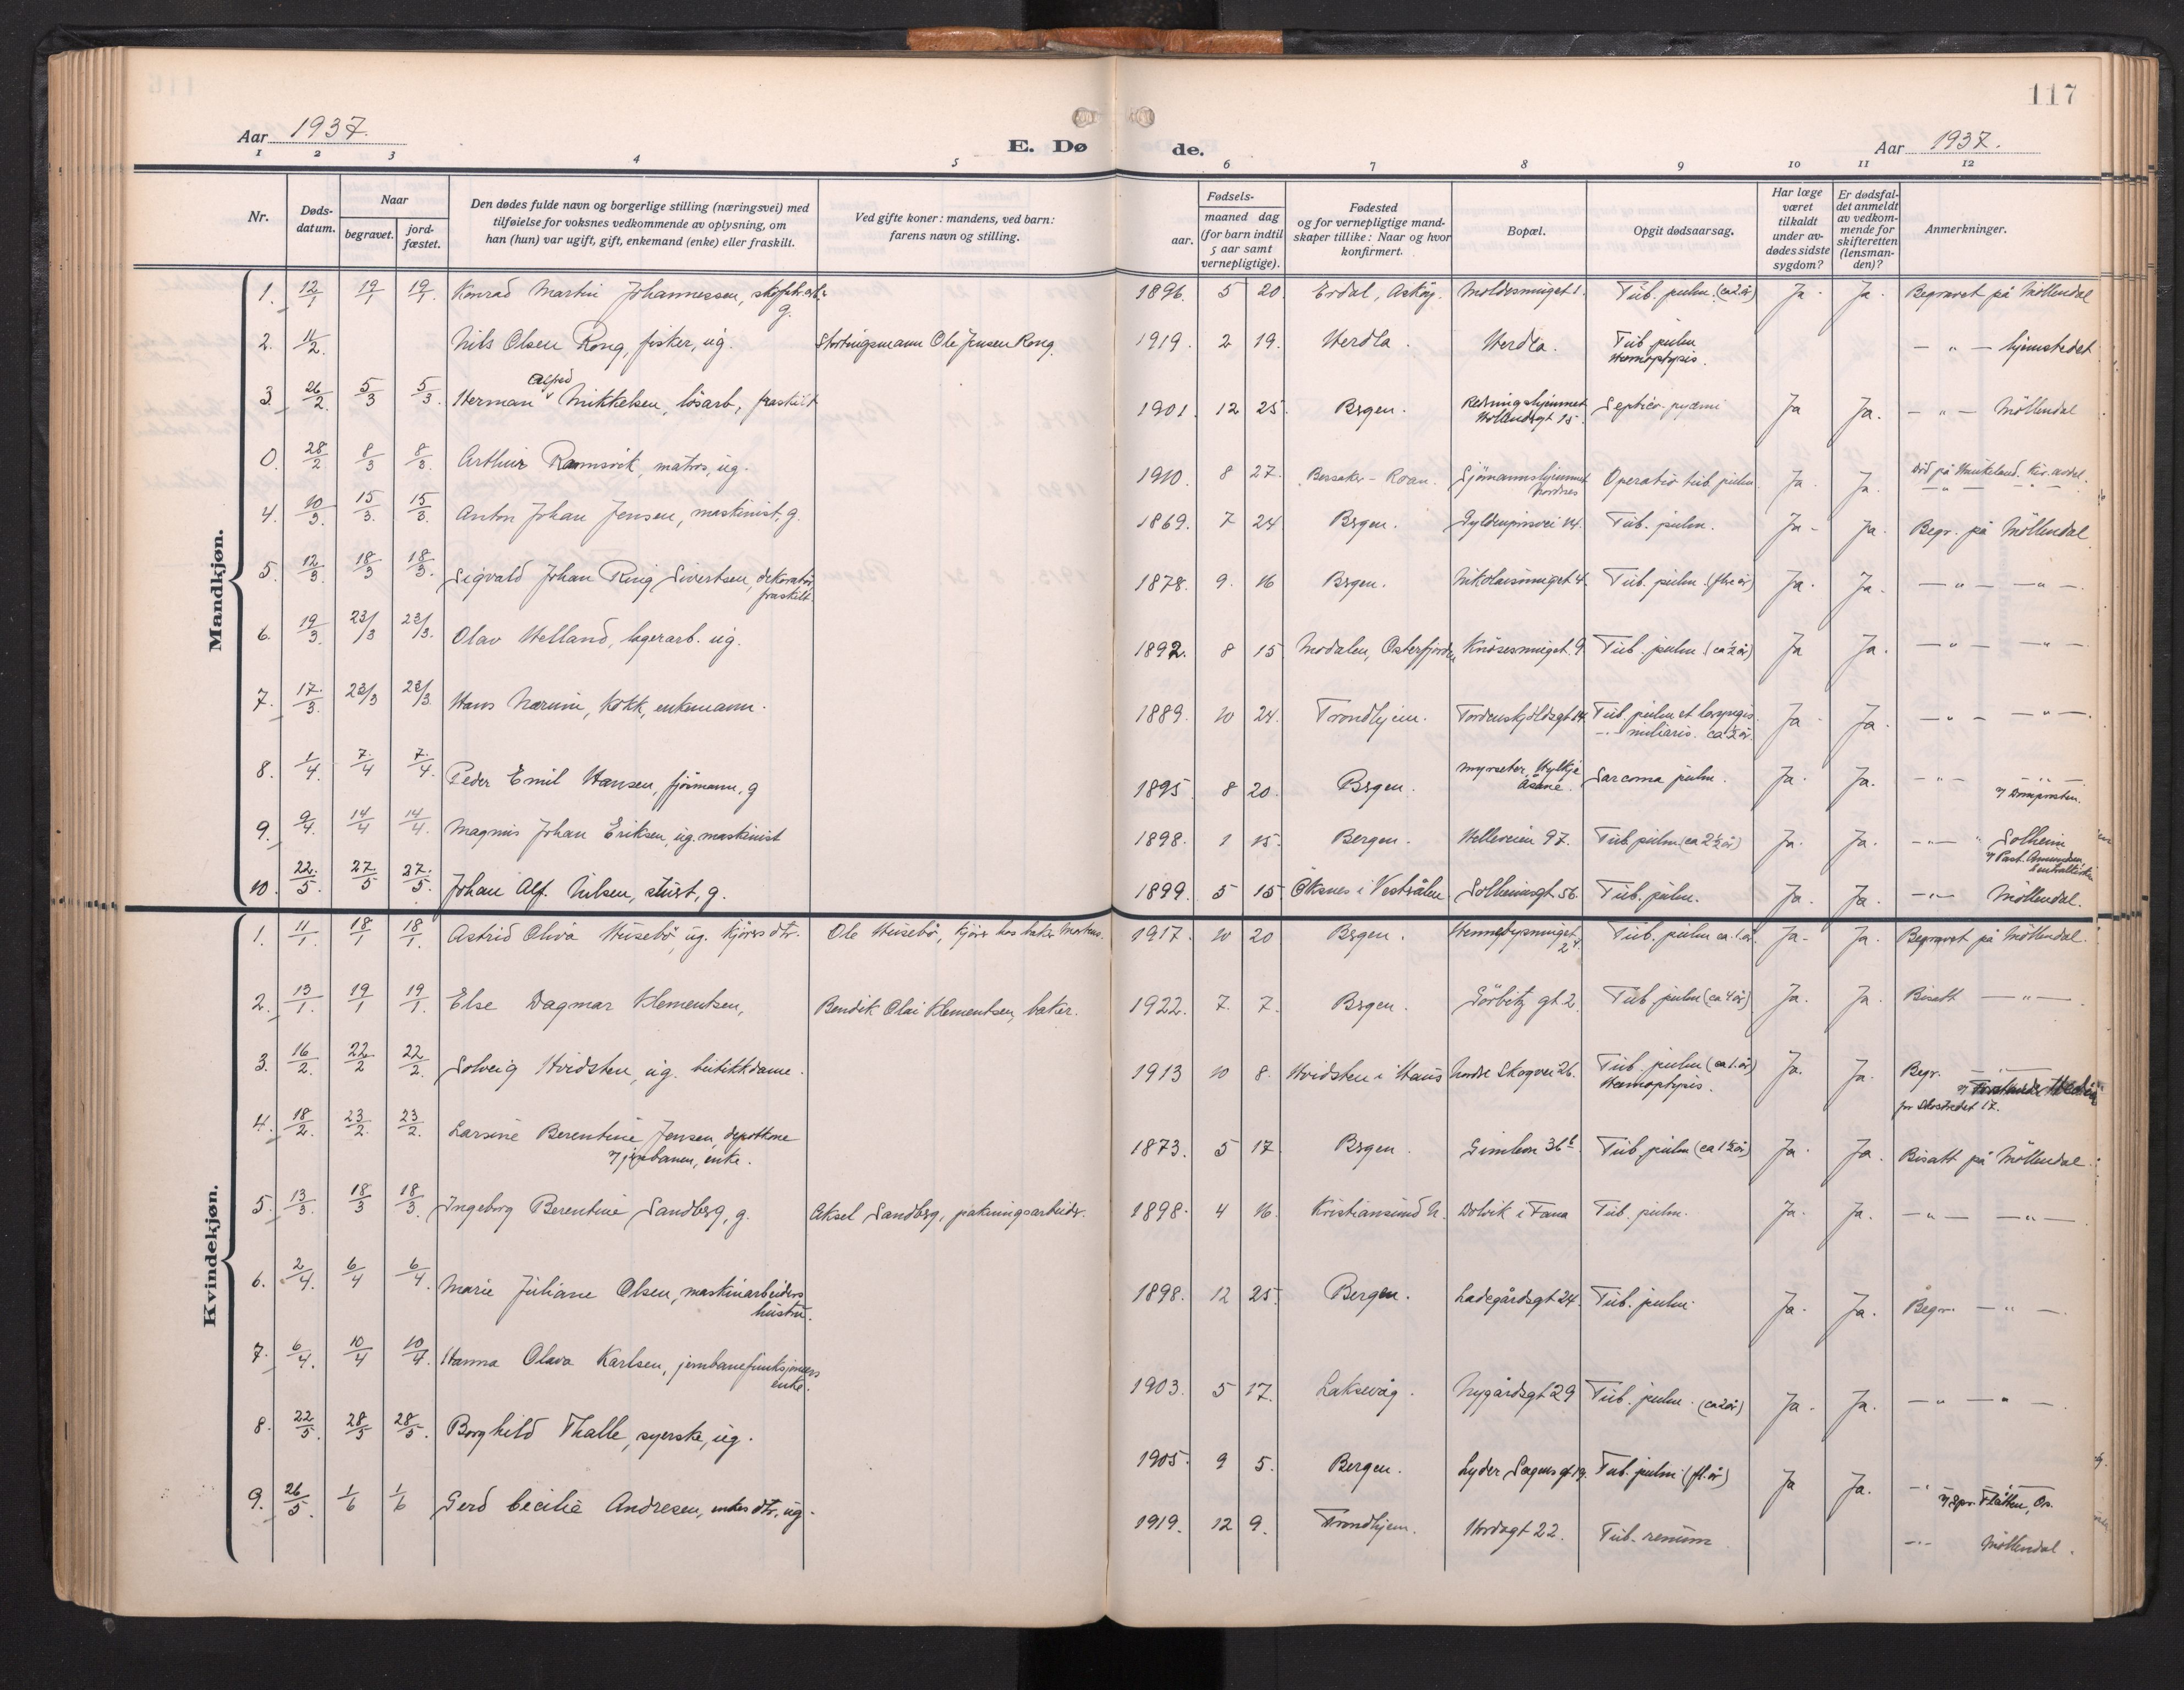 117
Aar 1937. E. Dø de. Aar 1937.
1 2 3 4 5 6 7 8 9 10 11 12
Nr.
Døds-
datum.
Naar
begravet.
jord-
fæstet.
Den dødes fulde navn og borgerlige stilling (næringsvei) med
tilføielse for voksnes vedkommende av oplysning, om
han (hun) var ugift, gift, enkemand (enke) eller fraskilt.
Ved gifte koner: mandens, ved barn:
farens navn og stilling.
Fødsels-
aar.
maaned dag
(for barn indtil
5 aar samt
vernepligtige).
Fødested
og for vernepligtige mand-
skaper tillike: Naar og hvor
konfirmert.
Bopæl.
Opgit dødsaarsag.
Har læge
været
tilkaldt
under av-
dødes sidste
sygdom?
Er dødsfal-
det anmeldt
av vedkom-
mende for
skifteretten
(lensman-
den)?
Anmerkninger.
Mandkjøn.
1. 12/1 19/1 19/1 Konrad Martin Johannessen, skofabr.arb. g. 1896. 5 20. Erdal, Askøy. Moldesmuget 1. Tub. pulm. (ca 2 år) Ja. Ja. Begravet på Möllendal
2. 11/2. Nils Olsen Rong, fisker, ug. Stortingsmann Ole Jensen Rong. 1919. 2 19. Herdla. Herdla. Tub. pulm Hemoptysis. — " — hjemstedet
3. 26/2. 5/3 5/3. Herman Alfred Mikkelsen, løsarb, fraskilt 1901. 12 25. Bergen. Redningshjemmet Hollendergt 15. Septico-pyæmi Ja Ja. — " — Möllendal
0. 28/2 8/3 8/3. Arthur Ramsvik, matros, ug. 1910. 8 27. Bessaker - Roan. Sjömannshjemmet Nordnes Operatio tub. pulm Ja. Ja. Död på Haukeland. Kir. avdel. — " — — " —
4. 10/3. 15/3. 15/3. Anton Johan Jensen, maskinist, g. 1869. 7 24 Bergen. Gyldenprisvei 14. Tub. pulm. Ja - Ja. Begr. på Möllendal
5. 12/3 18/3 18/3. Sigvald Johan Ring Sivertsen, dekoratör fraskilt. 1878. 9. 16 Bergen. Nikolaismuget 4. Tub. pulm. (flere år) Ja. Ja. — " — — " —
6. 19/3. 23/3 23/3. Olav Helland, lagerarb. ug. 1892. 8 15 Modalen, Osterfjorden Knösesmuget. 9 Tub. pulm. (ca ½ år) Ja Ja. — " — — " —
7. 17/3. 23/3 23/3. Hans Nærum, kokk, enkemann. 1889. 10 24. Trondhjem. Tordenskjoldsgt 14. Tub. pulm et laryngis — miliaris. ca 2 år. Ja. Ja. — " — — " —
8. 1/4. 7/4 7/4. Peder Emil Hansen, sjömann, g 1895 8 20. Bergen. Myrseter, Hylkje Åsane. Sarcoma pulm. Ja. Ja. — " — — " — v/ Domprosten.
9. 9/4. 14/4 14/4. Magnus Johan Eriksen, ug. maskinist 1898. 1 15. Bergen. Helleveien 97. Tub. pulm (ca 2½ år) Ja. Ja. — " — Solheim v/ Past. Amundsen,
10. 22/5. 27/5 27/5. Johan Alf. Nilsen, stuert, g. 1899. 5 15 Öksnes i Vestrålen Solheimsgt 56. Tub. pulm. Ja. Ja. — " — Möllendal.
Kvindekjøn.
1. 11/1. 18/1 18/1 Astrid Oliva Husebö, ug. kjörers dtr. Ole Husebö, kjörer hos baker Martens. 1917. 10 20 Bergen. Hennebysmuget 24. Tub. pulm ca. 1. år. Ja. Ja. Begravet på Möllendal.
2. 13/1. 19/1 19/1 Else Dagmar Klementsen, Bendik Olai Klementsen, baker. 1922. 7. 7. Bergen. Görbitz gt. 2. Tub. pulm (ca 4 år) Ja. Ja. Bisatt — " —
3. 16/2. 22/2 22/2. Solveig Hvidsten, ug. butikkdame. 1913 10 8. Hvidsten i Haus Nordre Skogvei 26. Tub. pulm (ca 1. år) Hemoptysis. Ja. Ja. Begr. — " — v/
4. 18/2. 23/2. 23/2. Larsine Berentine Jensen, depotkone v/ jernbanen, enke. 1873. 5 17. Bergen Gimleveien 36b. Tub. pulm (ca 1½ år) Ja. Ja. Bisatt på Möllendal.
5. 13/3. 18/3 18/3. Ingeborg Berentine Sandberg, g. Aksel Sandberg, pakningsarbeider. 1898. 4 16. Kristiansund N. Dolvik i Fana Tub. pulm. Ja. Ja. — " — — " —
6. 2/4. 6/4 6/4. Marie Juliane Olsen, maskinarbeiders hustru. 1898. 12 25. Bergen. Ladegårdsgt 24. Tub. pulm. Ja. Ja. Begr. — " —
7. 6/4. 10/4 10/4. Hanna Olava Karlsen, jernbanefunksjonærs enke. 1903. 5 17. Laksevåg. Nygårdsgt 29 Tub. pulm. (ca 2 år) Ja. Ja. — " — " —
8. 22/5. 28/5 28/5. Borghild Thalle, syerske, ug. 1905. 9 5. Bergen. Lyder Sagens gt 19. Tub. pulm. (fl. år) Ja Ja. — " — v/ Spr. Flåtten, Os.
9. 26/5. 1/6 1/6 Gerd Cecilie Andresen, enkes dtr, ug. 1919. 12 9. Trondhjem. Hordagt 22. Tub. renum — " — Möllendal.